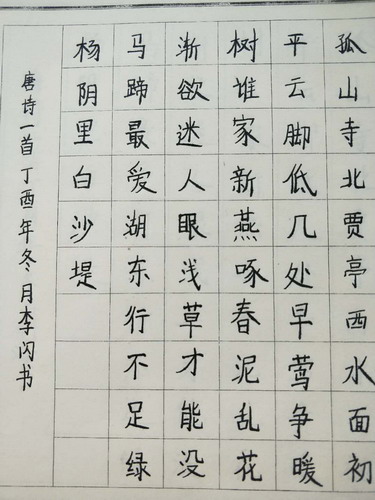 孤山寺北贾亭西水面初
平云脚低几处早莺争暖
树谁家新燕啄春泥乱花
渐欲迷人眼浅草才能没
马蹄最爱湖东行不足绿
杨阴里白沙堤
唐诗一首丁酉年冬月李闪书